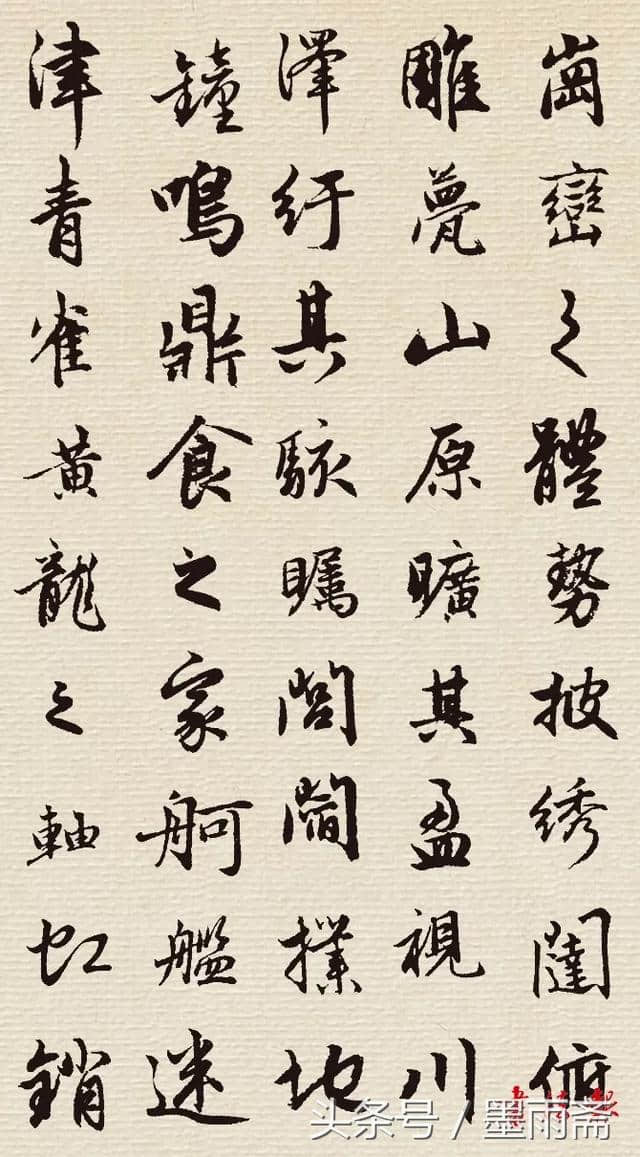 崗巒之體勢披綉闥俯
雕甍山原曠其盈視川
澤紆其駭矚閭閻撲地
鐘鳴鼎食之家舸艦迷
津青雀黃龍之軸虹銷
头条号 / 墨雨斋